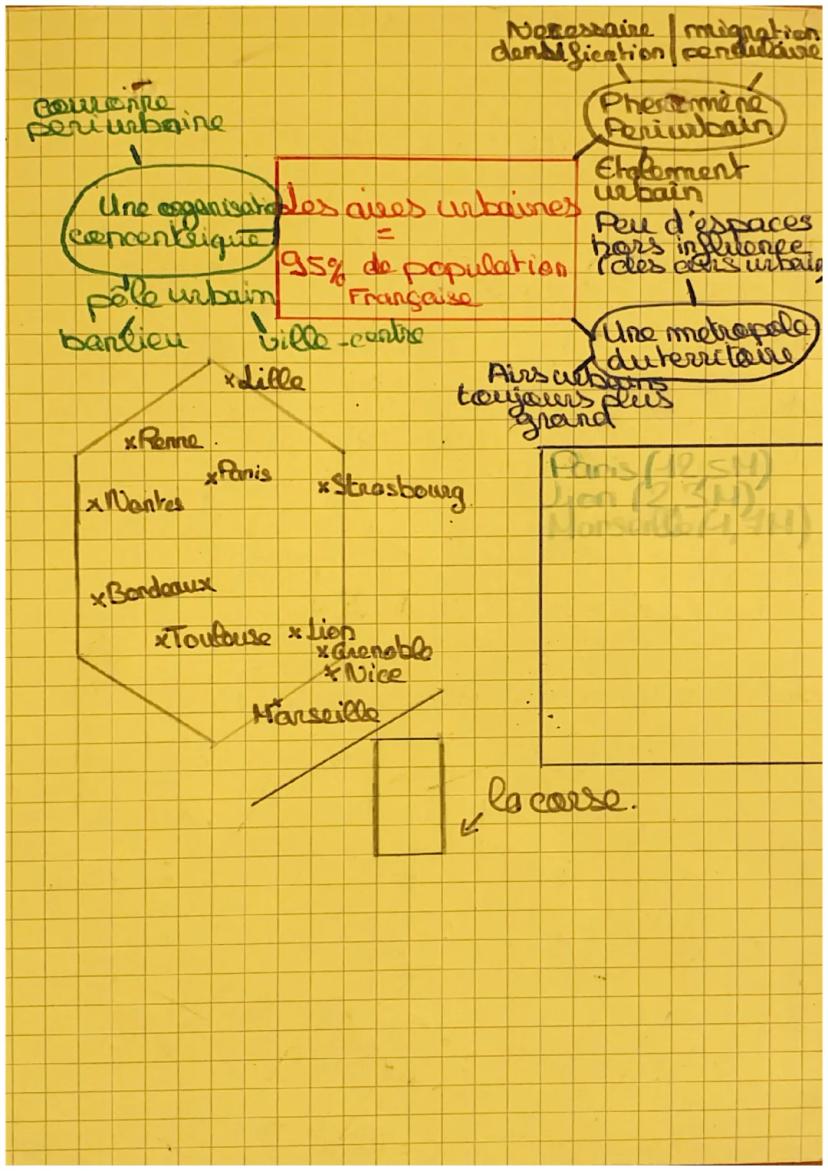 Necessaire
densification
migration
pendulaire
couronne
periurbaine
Phenomène
Periurbain
Une organisation
concentrique
Les aires urbaines
=
95% de population
Française
Etalement
urbain
Peu d'espaces
hors influence
des airs urbain
pôle urbain
banlieu
ville-centre
Une metropole
du territoire
Airs urbains
toujours plus
grand
xLille
xRenne
xParis
xStrasbourg
xNantes
xBordeaux
xToulouse
xLion
xGrenoble
xNice
Marseille
Paris (12,5M)
Lion (2,3M)
Marseille (1,7M)
la corse.